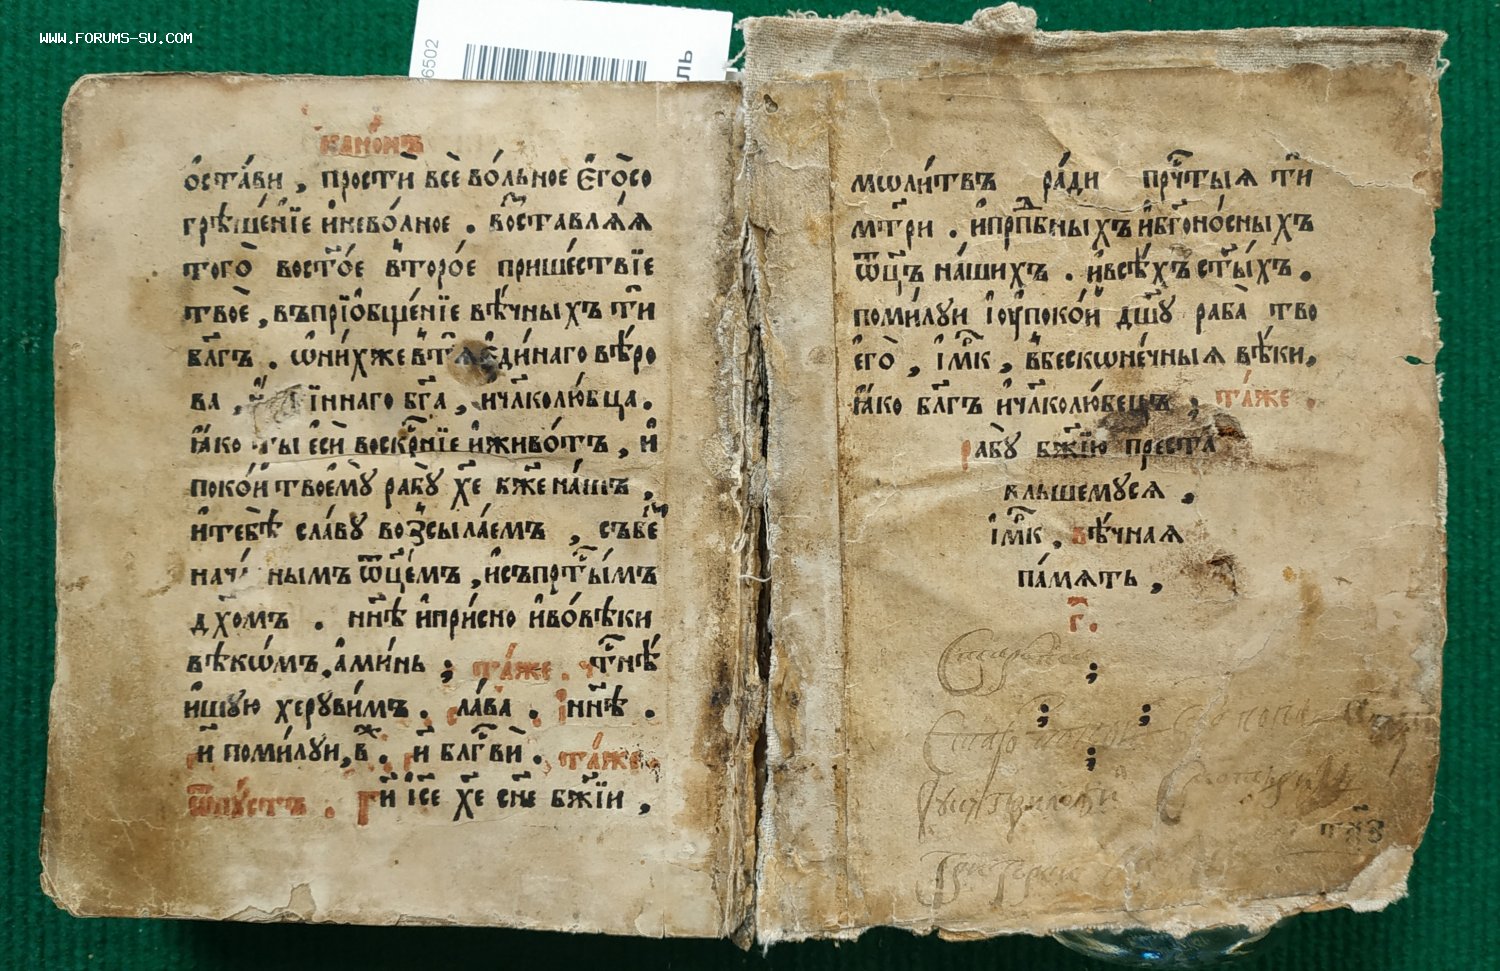 WWW.FORUMS-SU.COM
6502
ль
канонъ
ѻ҆ста́ви , простѝ всѐ во́льное є҆го̀ со
грѣше́нїе и҆ нево́лное . воⷭ҇ставлѧ́ѧ
того̀ востⷪ҇е в҆торо́е прише́ствїе
твоѐ , въ прїѻбще́нїе вѣ́чныхъ тѝ
бл҃гъ . ѡ҆ни́хже в҆ тѧ̀ є҆ди́наго вѣ́ро
ва , їннаго бг҃а , и҆ чл҃колю́бца .
ꙗ҆́ко ты̀ є҆сѝ воскрн҃їе и҆ живо́тъ , и҆
поко́й твоемꙋ̀ рабꙋ̀ хе҃ бж҃е на́шъ ,
и҆ тебѣ̀ сла́вꙋ возсыла́емъ , съ бе́з
нача нымъ ѿц҃е́мъ , и҆ съ прт҃ы́мъ
дх҃омъ . нн҃ѣ и҆ при́сно и҆ во́ вѣки
вѣкѡ́мъ . а҆ми́нь ; та́же . чт҃нѣ
и҆шꙋю херꙋви́мъ . ла́ва . і҆ нн҃ѣ .
г҃и поми́лꙋи , в҃ . г҃и бл҃гвѝ . та́же .
ѿпꙋстъ . г҃и і҆се҃ хе҃ сн҃е бж҃їи ,
мѡли́твъ ра́ди прч҃тыѧ тѝ
мт҃ри . и҆ прпⷣбныхъ и҆ бг҃оно́сныхъ
ѿц҃ъ на́шихъ . и҆ всѣ́хъ ст҃ы́хъ .
поми́лꙋи і҆ оу҆поко́й дш҃ꙋ раба̀ тво
є҆го̀ , і҆мр҃к , в҆ бескѡне́чныѧ вѣ́ки ,
ꙗ҆́ко бл҃гъ и҆ чл҃колю́бецъ ; та́же .
рабꙋ̀ бж҃їю преста
вльшемꙋсѧ ,
і҆мр҃к , вѣ́чнаѧ
па́мѧть ,
г҃ .